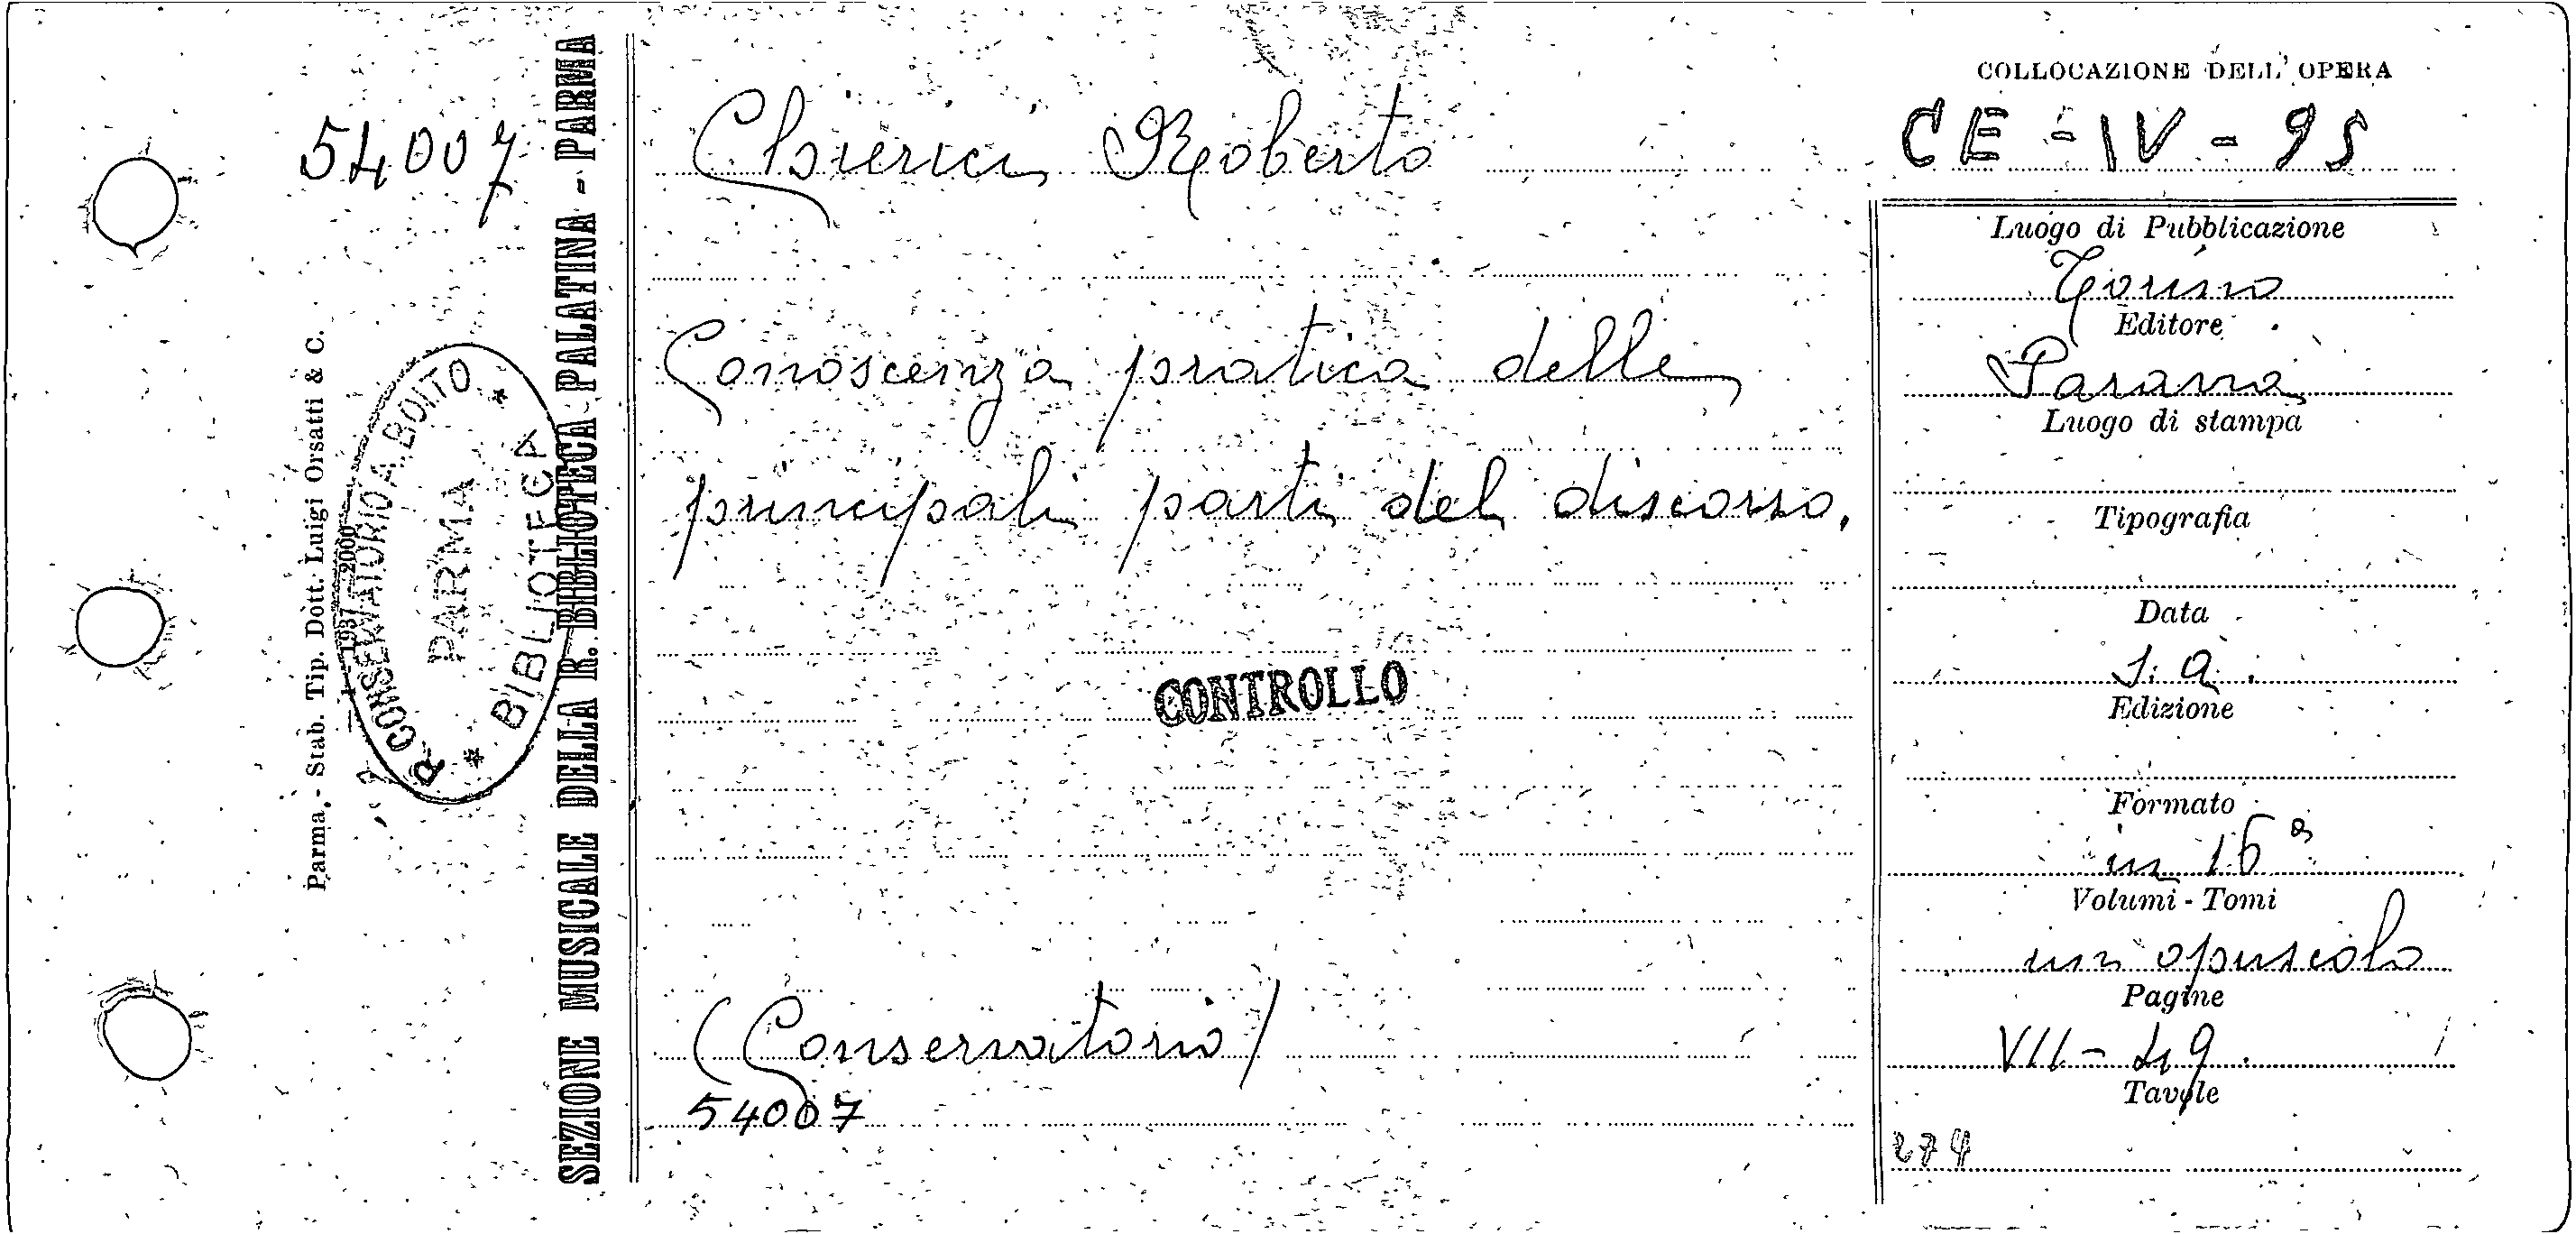 54007
Parma, - Stab. Tip. Dott. Luigi Orsatti & C.
1937 - 2000
R. CONSERVATORIO A. BOITO
PARMA
* BIBLIOTECA *
SEZIONE MUSICALE DELLA R. BIBLIOTECA PALATINA - PARMA
Chierici Roberto
Conoscenza pratica delle
principali parti del discorso.
CONTROLLO
(Conservatorio)
54007
COLLOCAZIONE DELL' OPERA
CE - IV - 95
Luogo di Pubblicazione
Torino
Editore
Paravia
Luogo di stampa
Tipografia
Data
s. a.
Edizione
Formato
in 16°
Volumi - Tomi
un opuscolo
Pagine
VII - 49.
Tavole
274